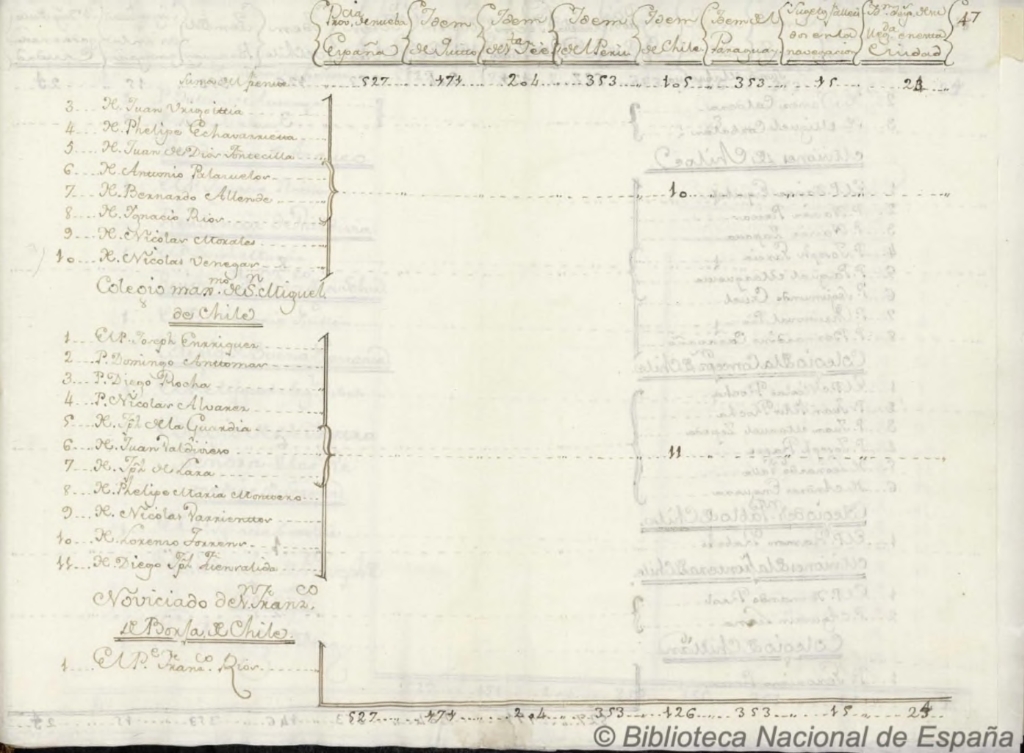 Prov.ª de nueba España
Idem de Quito
Idem de S.ta Fee
Idem del Peru
Idem de Chile
idem del Paraguay
en esta navegacion
Ciudad
47
Suma del frente 527 171 204 353 105 353 15 24
3 H. Juan Vrigoittia
4 H. Phelipe Echavarrieua
5 H. Juan de Dios Fontecilla
6 H. Antonio Palazuelos
7 H. Bernardo Allende 10
8 H. Ignacio Rios
9 H. Nicolas Morales
10 H. Nicolas Venegas
Colegio max.mo de S.n Miguel
de Chile
1 El P. Joseph Enrriquez
2 P. Domingo Anttomas
3 P. Diego Rocha
4 P. Nicolas Alvarez
5 H. Jph de la Guardia
6 H. Juan Valdivieso 11
7 H. Jph de Lara
8 H. Phelipe Maria Monttero
9 H. Nicolas Varrienttos
10 H. Lorenzo Torrens
11 H. Diego Jph Fuenzalida
Noviciado de N. Franz.co
de Borja de Chile
1 El P.e Franz.co Rios
527 171 204 353 126 353 15 24
© Biblioteca Nacional de España